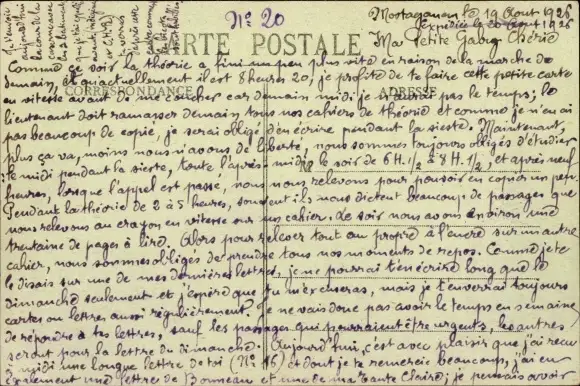 N° 20
Mostaganem le 19 Aout 1926
Expédiée le 20 Aout 1926
Ma Petite Gaby Chérie
CARTE POSTALE
CORRESPONDANCE
ADRESSE
Comme ce soir la théorie a fini un peu plus vite en raison de la marche de
demain, et qu'actuellement il est 8 heures 20, je profite de te faire cette petite carte
en vitesse avant de me coucher car demain midi je n'aurai pas le temps, le
lieutenant doit ramasser demain tous nos cahiers de théorie et comme je n'en ai
pas beaucoup de copié, je serai obligé d'en écrire pendant la sieste. Maintenant,
plus ça va, moins nous avons de liberté, nous sommes toujours obligés d'étudier
le midi pendant la sieste, toute l'après-midi, le soir de 6H.1/2 à 8H.1/2, et après neuf
heures, lorsque l'appel est passé, nous nous relevons pour pouvoir en copier un peu.
Pendant la théorie de 2 à 5 heures, souvent ils nous dictent beaucoup de passages que
nous relevons au crayon en vitesse sur un cahier. Le soir nous avons environ une
trentaine de pages à lire. Alors pour relever tout au propre à l'encre sur un autre
cahier, nous sommes obligés de prendre tous nos moments de repos. Comme je te
le disais sur une de mes dernières lettres, je ne pourrai t'en écrire long que le
dimanche seulement et j'espère que tu m'excuseras, mais je t'enverrai toujours
cartes ou lettres aussi régulièrement. Je ne vais donc pas avoir le temps en semaine
de répondre à tes lettres, sauf les passages qui pourraient être urgents, les autres
seront pour la lettre du dimanche. Aujourd'hui, c'est avec plaisir que j'ai reçu
à midi une longue lettre de toi (N° 16) et dont je te remercie beaucoup, j'ai eu
également une lettre de Bonneau et une de ma tante Claire, je pensais avoir